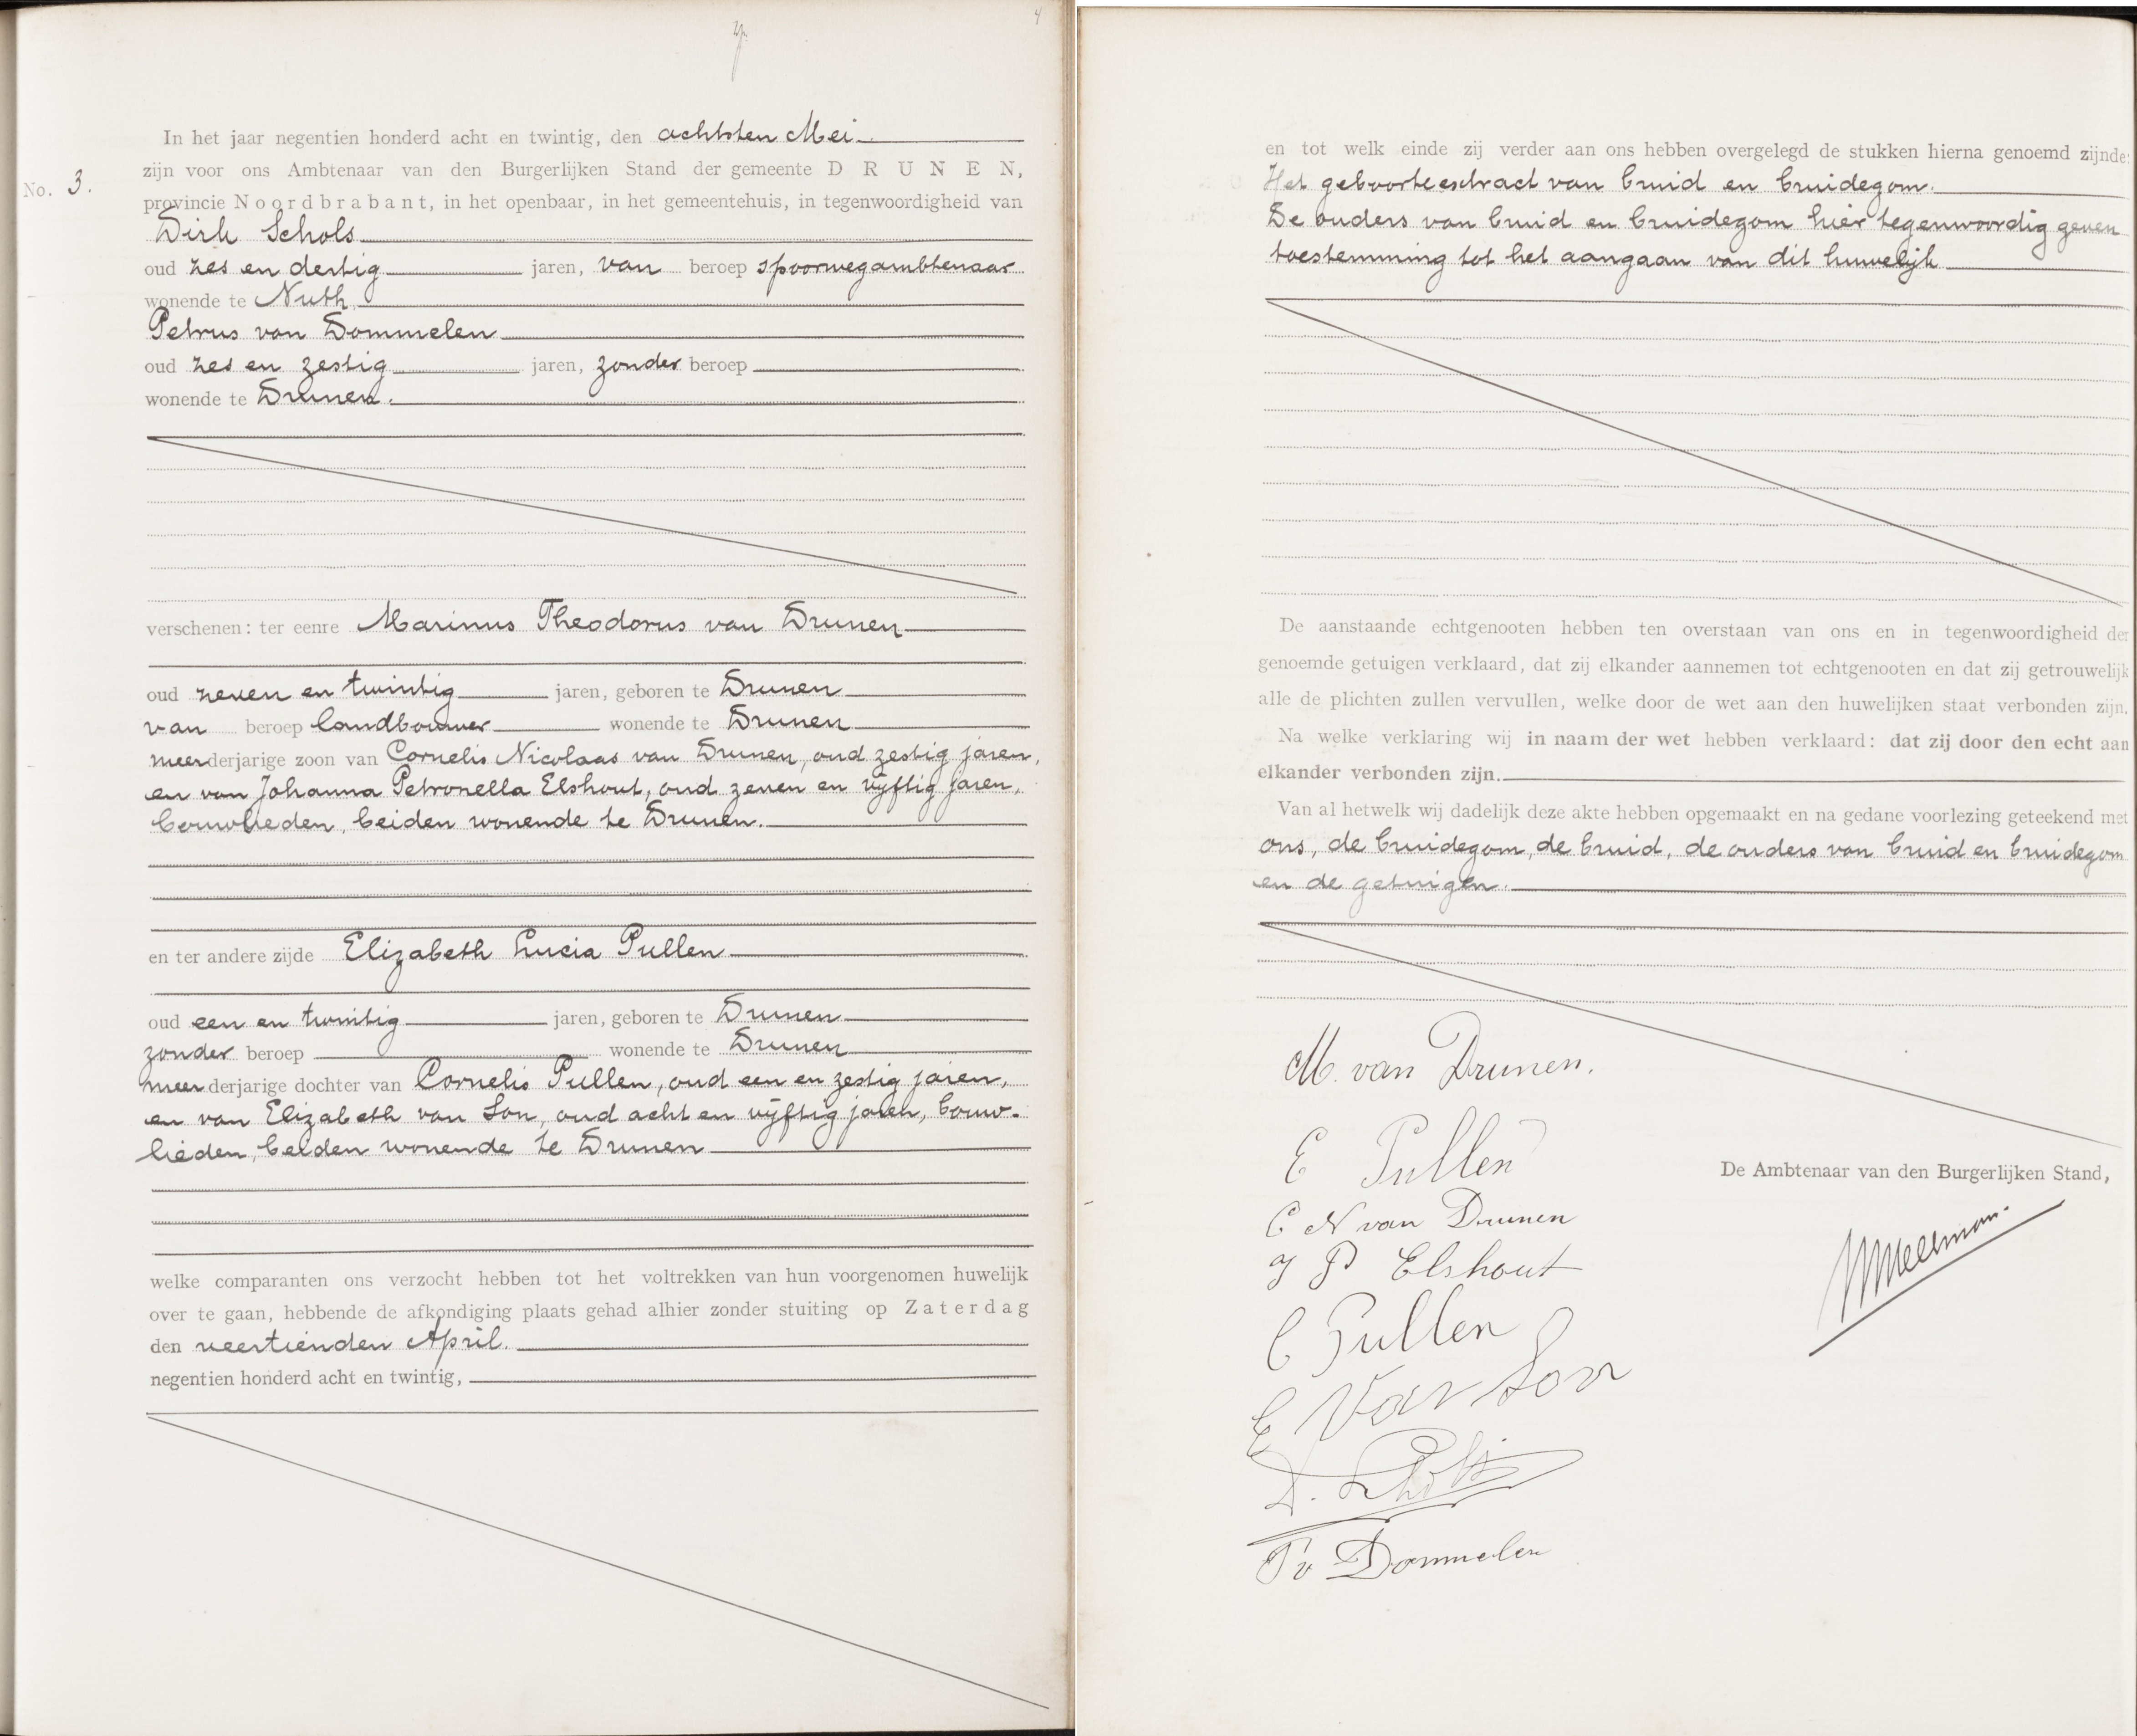 4
In het jaar negentien honderd acht en twintig, den achtsten Mei
zijn voor ons Ambtenaar van den Burgerlijken Stand der gemeente D R U N E N,
No. 3.
provincie Noordbrabant, in het openbaar, in het gemeentehuis, in tegenwoordigheid van
Dirk Schols
oud zes en dertig jaren, van beroep spoorwegambtenaar
wonende te Nuth
Petrus van Dommelen
oud zes en zestig jaren, zonder beroep
wonende te Drunen.
verschenen: ter eenre Marinus Theodorus van Drunen
oud zeven en twintig jaren, geboren te Drunen
van beroep landbouwer wonende te Drunen
meerderjarige zoon van Cornelis Nicolaas van Drunen, oud zestig jaren,
en van Johanna Petronella Elshout, oud zeven en vijftig jaren,
bouwlieden, beiden wonende te Drunen.
en ter andere zijde Elizabeth Lucia Pullen
oud een en twintig jaren, geboren te Drunen
zonder beroep wonende te Drunen
meerderjarige dochter van Cornelis Pullen, oud een en zestig jaren,
en van Elizabeth van Son, oud acht en vijftig jaren, bouw-
lieden, beiden wonende te Drunen
welke comparanten ons verzocht hebben tot het voltrekken van hun voorgenomen huwelijk
over te gaan, hebbende de afkondiging plaats gehad alhier zonder stuiting op Zaterdag
den veertienden April.
negentien honderd acht en twintig,
en tot welk einde zij verder aan ons hebben overgelegd de stukken hierna genoemd zijnde:
Het geboorteextract van bruid en bruidegom.
De ouders van bruid en bruidegom hier tegenwoordig geven
toestemming tot het aangaan van dit huwelijk
De aanstaande echtgenooten hebben ten overstaan van ons en in tegenwoordigheid der
genoemde getuigen verklaard, dat zij elkander aannemen tot echtgenooten en dat zij getrouwelijk
alle de plichten zullen vervullen, welke door de wet aan den huwelijken staat verbonden zijn.
Na welke verklaring wij in naam der wet hebben verklaard: dat zij door den echt aan
elkander verbonden zijn.
Van al hetwelk wij dadelijk deze akte hebben opgemaakt en na gedane voorlezing geteekend met
ons, de bruidegom, de bruid, de ouders van bruid en bruidegom
en de getuigen.
M. van Drunen.
E Pullen
De Ambtenaar van den Burgerlijken Stand,
C N van Drunen
J P Elshout
C Pullen
E Van Son
D. Schols
P v Dommelen